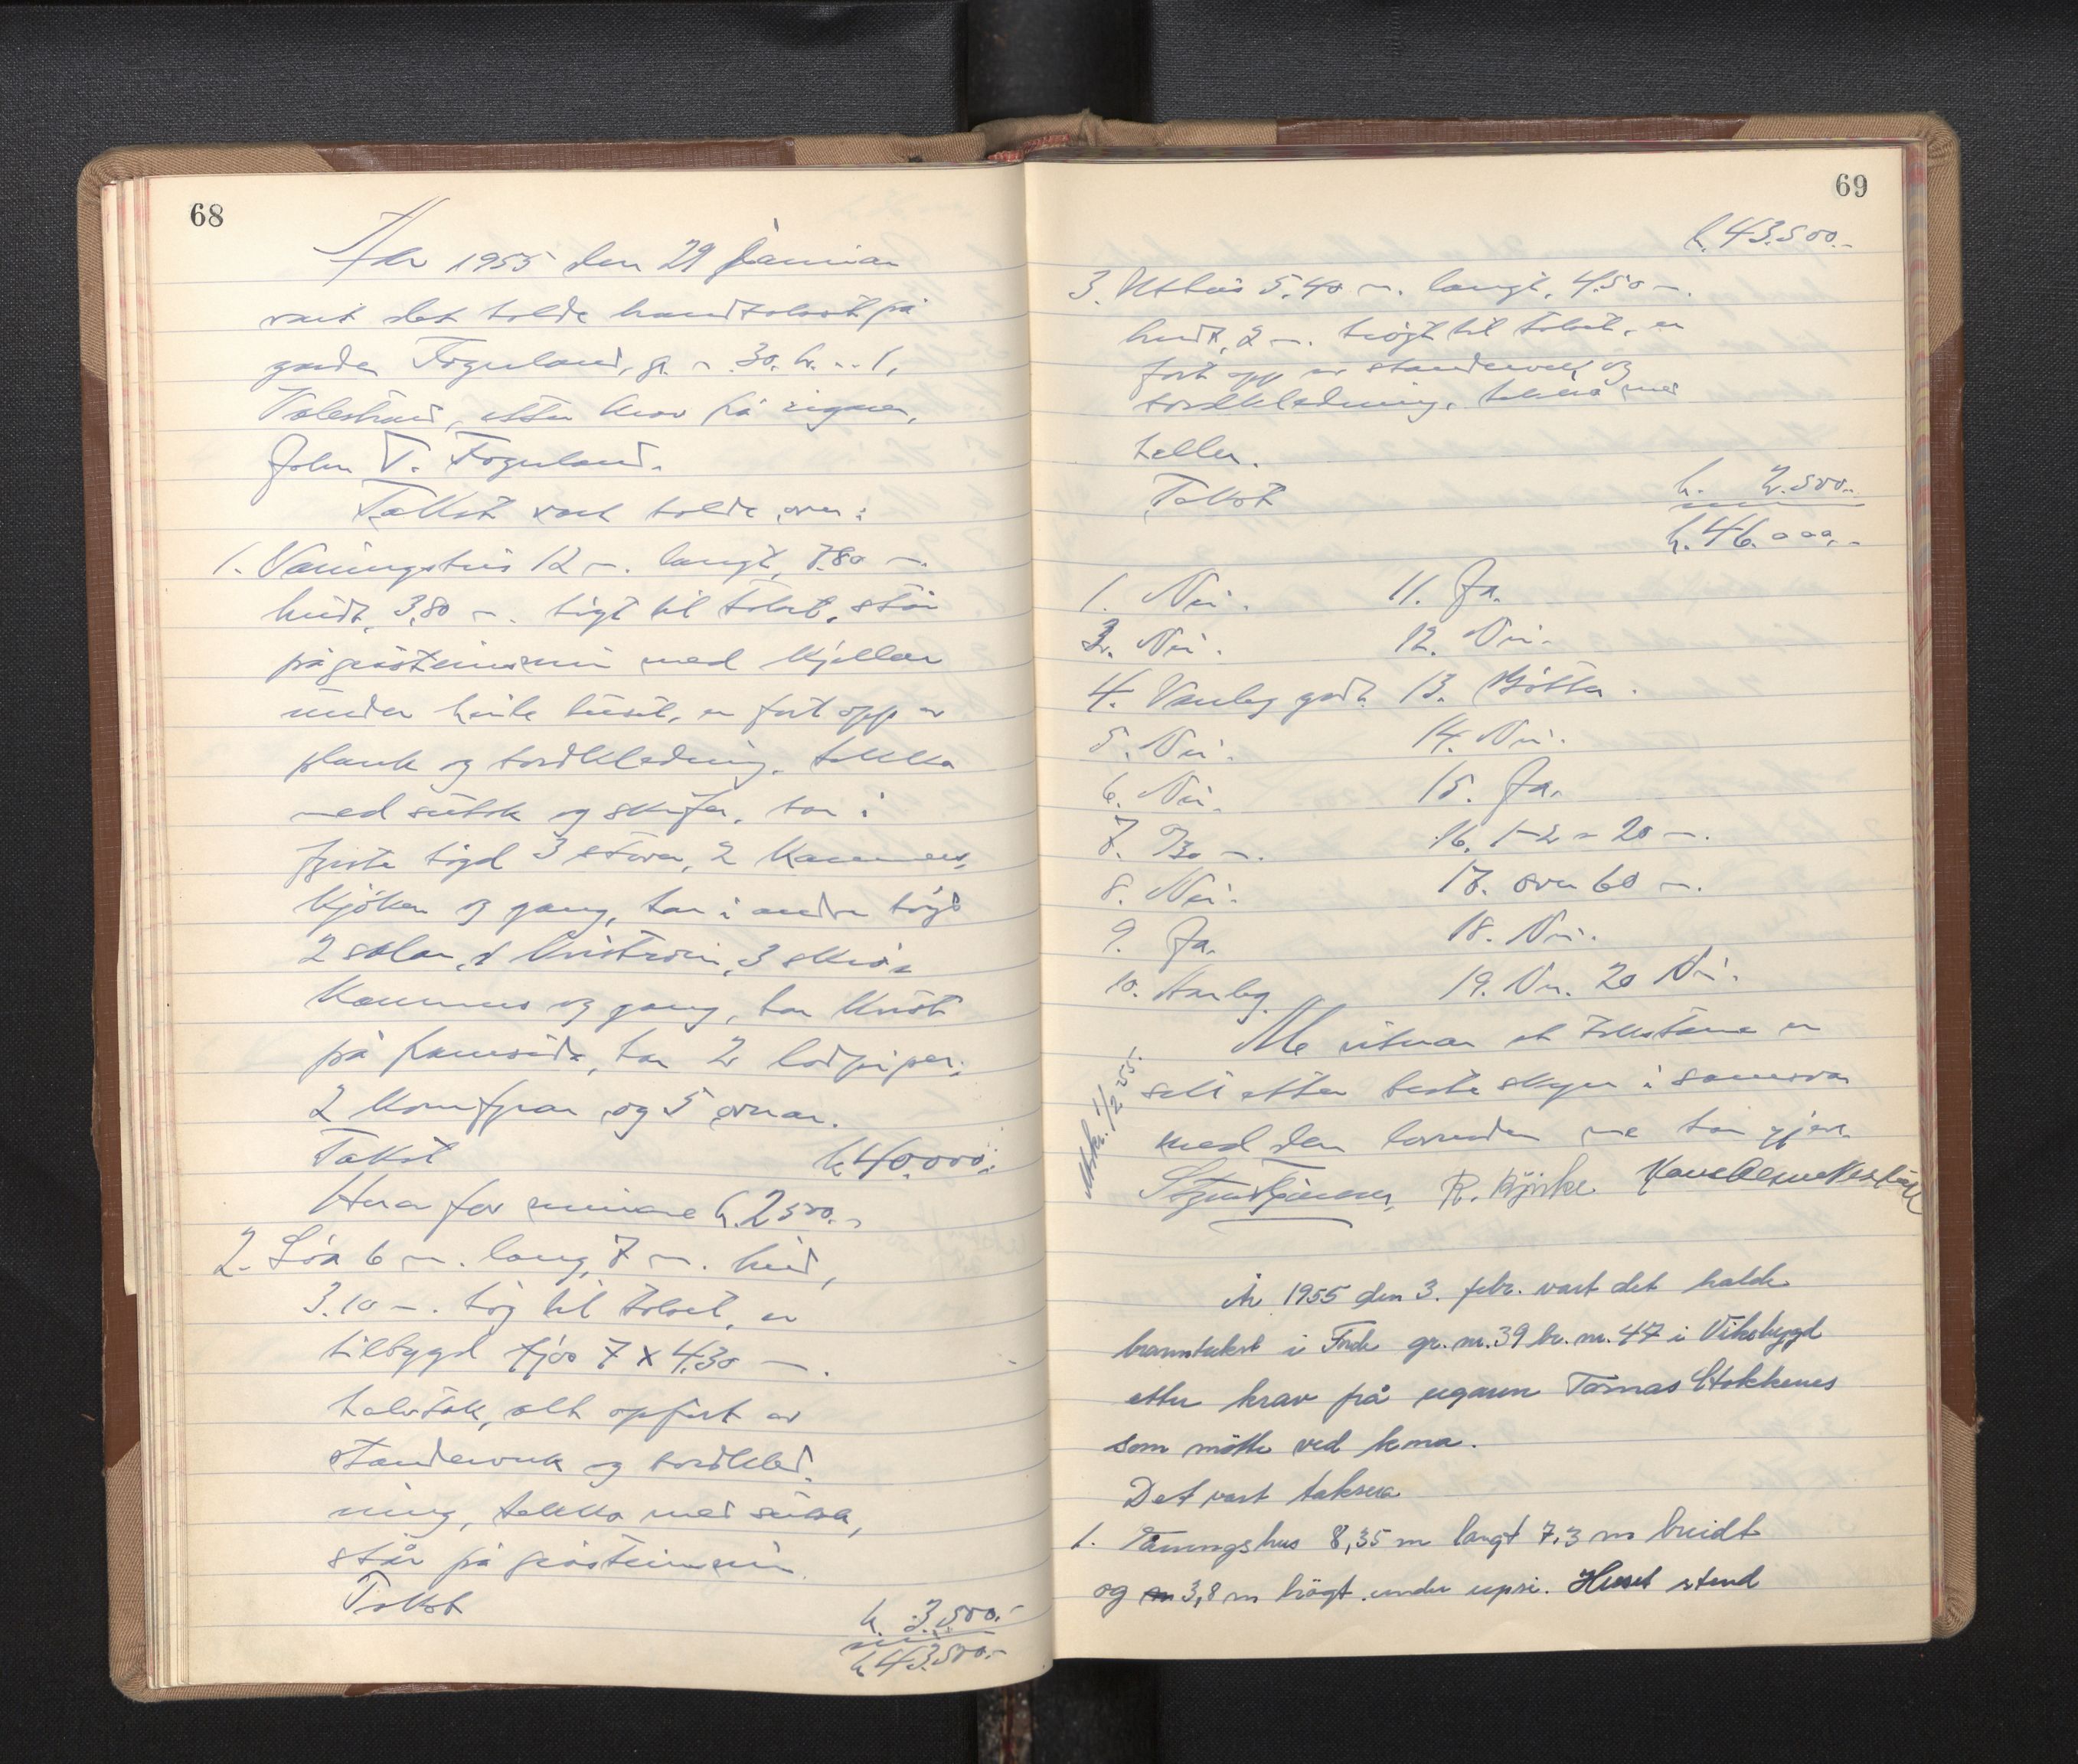 68
År 1955 den 29 januar
vart det halde branntakst på
garden Fögerland, gr. nr. 30, br. nr. 1,
Balestrand, etter krav frå eigaren,
John T. Fögerland.
Takst vart halde over:
1. Våningshus 12 m. langt, 7.80 m.
breidt, 3,80 m. högt til troket, står
på gråsteinsmur med kjellar
under heile huset, er fört opp av
plank og bordkledning, tekka
med sutak og skifer, har i
fyrste högd 3 stover, 2 kammers,
kjöken og gang, har i andre högd
2 salar, 1 kvistrom, 3 skrå-
kammers og gang, har kvist
på framsida, har 2 lodpiper,
2 komfyrar og 5 omnar.
Takst k 40.000.-
Herav for murane k. 2500.-
2. Löa 6 m. lang, 7 m. breid,
3.10 m. hög til troket, er
tilbygd fjös 7 x 4.30 m.
halvtak, alt oppfört av
standerverk og bordkled-
ning, tekka med
står på gråsteinmur.
Takst
k. 3.500.-
k 43.500.-
69
k. 43.500.-
3. Uthus 5.40 m. langt, 4.50 m.
breidt, 2 m. högt til troket, er
fört opp av standerverk og
bordkledning, tekka med
heller.
Takst k. 2.500.-
k. 46.000.-
1. Nei. 11. Ja.
3. Nei. 12. Nei.
4. Vanleg godt 13. Bötta.
5. Nei. 14. Nei.
6. Nei. 15. Ja.
7. 30 m. 16. 1-2 = 20 m.
8. Nei. 17. over 60 m.
9. Ja. 18. Nei.
10. Årleg 19. Nei. 20 Nei.
Me vitnar at takstane er
sett etter beste skyn i samsvar
med den lovnaden me har gjeve.
Utskr. 1/2 55.
R. Björke
År 1955 den 3. febr. vart det halde
branntakst i Förde gr. nr. 39 br. nr. 47 i Viksbygd
etter krav frå eigaren Tomas Stokkenes
som mötte ved kona.
Det vart taksera
1. Våningshus 8,35 m langt 7,3 m breidt
og 3,8 m högt under upsi. Huset stend